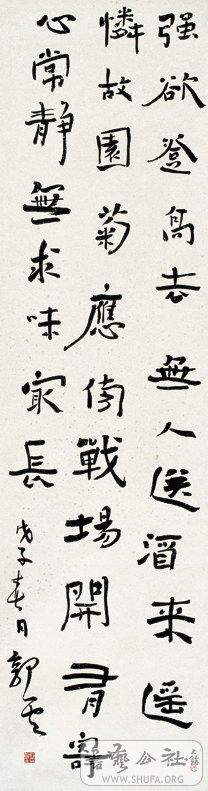 强欲登高去無人送酒來遥
憐故園菊應傍戰場開有寄
心常靜無求味冣長
戊子春日郭
書藝公社
WWW.SHUFA.ORG